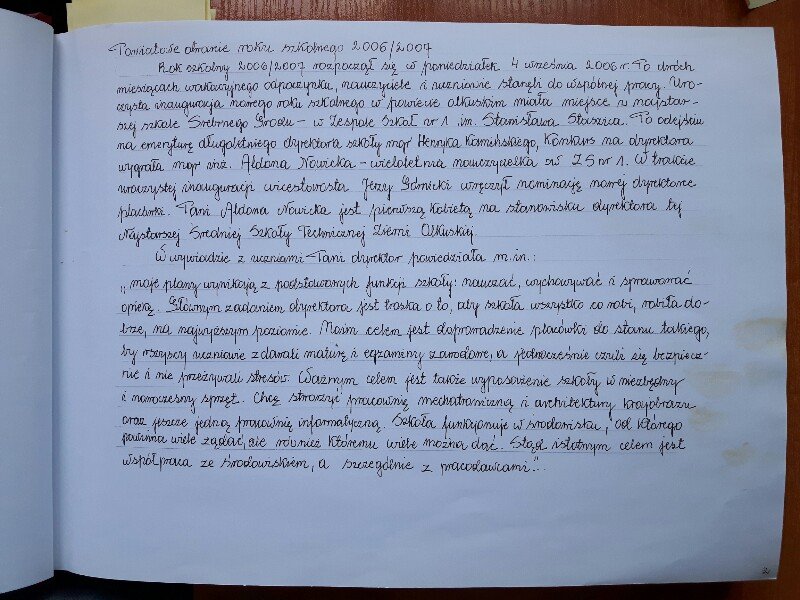 Powiatowe otwarcie roku szkolnego 2006/2007
Rok szkolny 2006/2007 rozpoczął się w poniedziałek 4 września 2006 r. Po dwóch
miesiącach wakacyjnego odpoczynku, nauczyciele i uczniowie stanęli do wspólnej pracy. Uro-
czysta inauguracja nowego roku szkolnego w powiecie olkuskim miała miejsce w najstar-
szej szkole Srebrnego Grodu - w Zespole Szkół nr 1 im. Stanisława Staszica. Po odejściu
na emeryturę długoletniego dyrektora szkoły mgr Henryka Kamińskiego, konkurs na dyrektora
wygrała mgr inż. Aldona Nowicka - wieloletnia nauczycielka w ZS nr 1. W trakcie
uroczystej inauguracji wicestarosta Jerzy Górnicki wręczył nominację nowej dyrektorce
placówki. Pani Aldona Nowicka jest pierwszą kobietą na stanowisku dyrektora tej
Najstarszej Średniej Szkoły Technicznej Ziemi Olkuskiej
W wywiadzie z uczniami Pani dyrektor powiedziała m.in.:
„moje plany wynikają z podstawowych funkcji szkoły: nauczać, wychowywać i sprawować
opiekę. Głównym zadaniem dyrektora jest troska o to, aby szkoła wszystko co robi, robiła do-
brze, na najwyższym poziomie. Moim celem jest doprowadzenie placówki do stanu takiego,
by wszyscy uczniowie zdawali maturę i egzaminy zawodowe, a jednocześnie czuli się bezpiecz-
nie i nie przeżywali stresów. Ważnym celem jest także wyposażenie szkoły w niezbędny
i nowoczesny sprzęt. Chcę stworzyć pracownię mechatroniczną i architektury krajobrazu
oraz jeszcze jedną pracownię informatyczną. Szkoła funkcjonuje w środowisku, od którego
powinna wiele żądać, ale również któremu wiele można dać. Stąd istotnym celem jest
współpraca ze środowiskiem, a szczególnie z pracodawcami"...